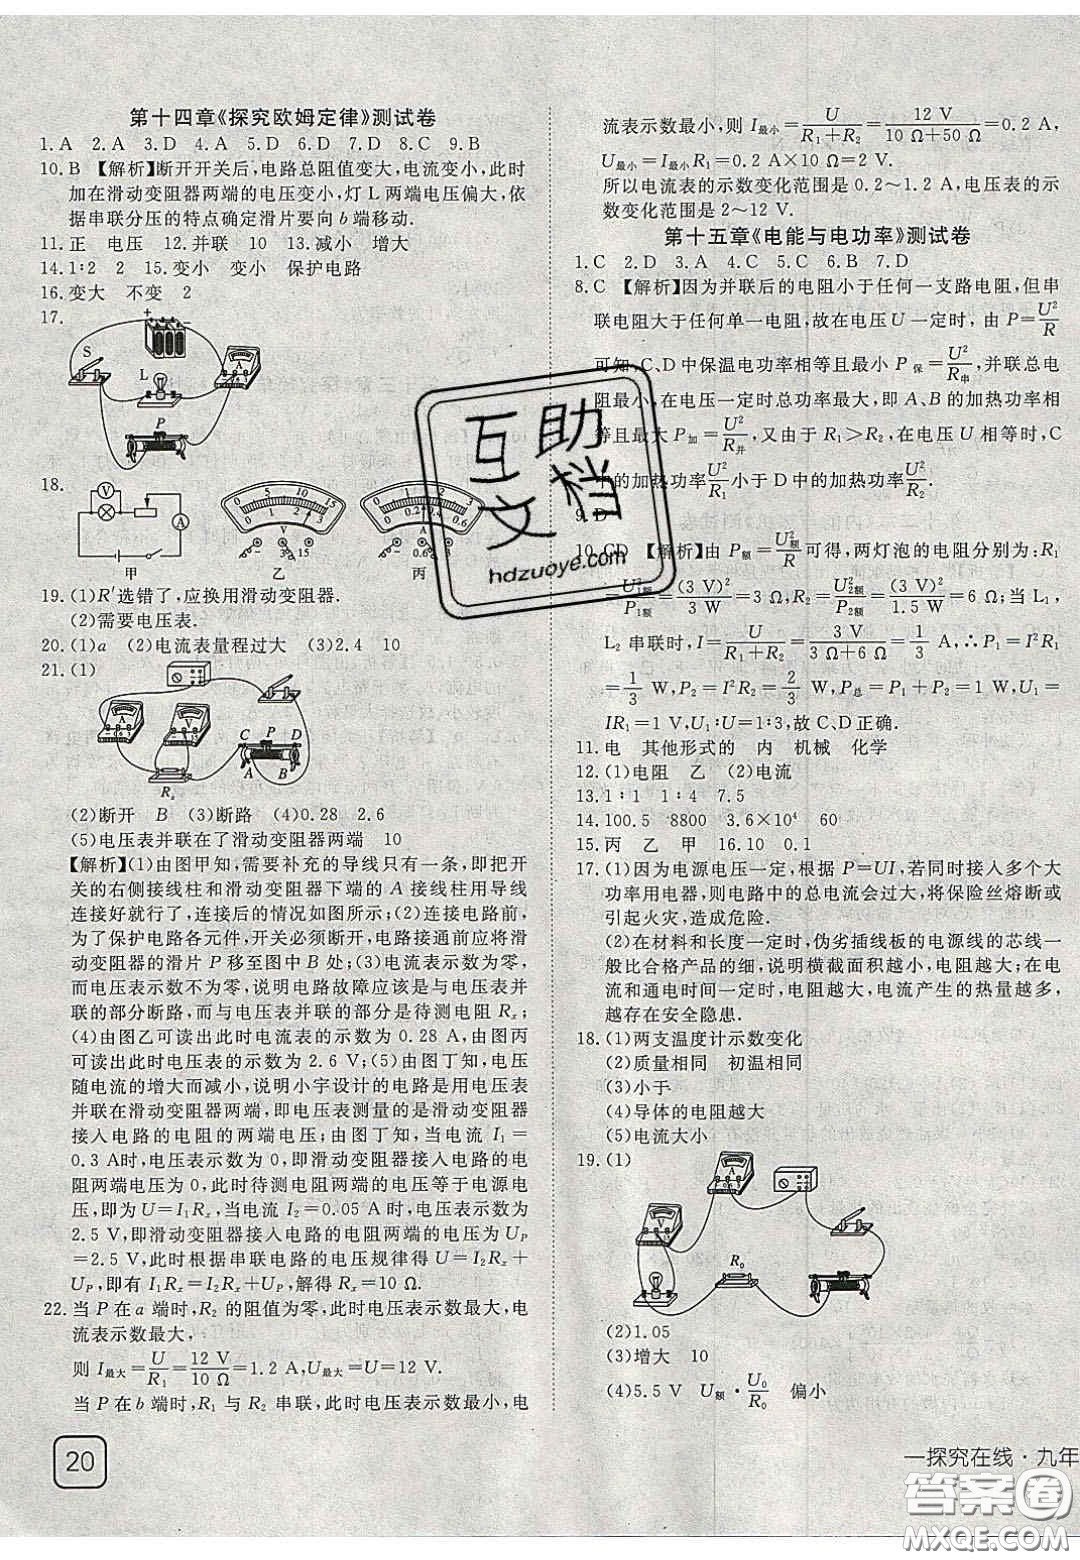 第十四章《探究欧姆定律》测试卷
1.A 2.A 3.D 4.A 5.D 6.D 7.D 8.C 9.B
10.B 【解析】断开开关后,电路总阻值变大,电流变小,此时
加在滑动变阻器两端的电压变小,灯 L 两端电压偏大,依
据串联分压的特点确定滑片要向 b 端移动.
11.正 电压 12.并联 10 13.减小 增大
14.1:2 2 15.变小 变小 保护电路
16.变大 不变 2
17.
+ −
S
L
P
18.
V
A
甲
0 5 10 15
0 1 2 3
V
− 3 15
乙
0 1 2 3
0 0.2 0.4 0.6
A
− 0.6 3
丙
19.(1)R′选错了,应换用滑动变阻器.
(2)需要电压表.
20.(1)a (2)电流表量程过大 (3)2.4 10
21.(1)
A
V
C P D
A B
Rx
(2)断开 B (3)断路 (4)0.28 2.6
(5)电压表并联在了滑动变阻器两端 10
【解析】(1)由图甲知,需要补充的导线只有一条,即把开
关的右侧接线柱和滑动变阻器下端的 A 接线柱用导线
连接好就行了,连接后的情况如图所示;(2)连接电路前,
为了保护电路各元件,开关必须断开,电路接通前应将滑
动变阻器的滑片 P 移至图中 B 处;(3)电流表示数为零,
而电压表示数不为零,说明电路故障应该是与电压表并
联的部分断路,而与电压表并联的部分是待测电阻 Rx;
(4)由图乙可读出此时电流表的示数为 0.28 A,由图丙
可读出此时电压表的示数为 2.6 V;(5)由图丁知,电压
随电流的增大而减小,说明小宇设计的电路是用电压表
并联在滑动变阻器两端,即电压表测量的是滑动变阻器
接入电路的电阻的两端电压;由图丁知,当电流 I1=
0.3 A时,电压表示数为 0,即滑动变阻器接入电路的电
阻两端电压为 0,此时待测电阻两端的电压等于电源电
压,即为 U=I1Rx,当电流 I2=0.05 A时,电压表示数为
2.5 V,即滑动变阻器接入电路的电阻两端的电压为 UP
=2.5 V,此时根据串联电路的电压规律得 U=I2Rx+
UP,即有 I1Rx=I2Rx+UP,解得 Rx=10 Ω.
22.当 P 在 a 端时,R2 的阻值为零,此时电压表示数最大,电
流表示数最大,
则 I最大=U/R1=12 V/10 Ω=1.2 A,U最大=U=12 V.
当 P 在 b 端时,R1 与 R2 串联,此时电压表示数最小,电
20
流表示数最小,则 I最小=U/(R1+R2)=12 V/(10 Ω+50 Ω)=0.2 A,
U最小=I最小R1=0.2 A×10 Ω=2 V.
所以电流表的示数变化范围是 0.2~1.2 A,电压表的示
数变化范围是 2~12 V.
第十五章《电能与电功率》测试卷
1.C 2.D 3.A 4.C 5.C 6.B 7.D
8.C 【解析】因为并联后的电阻小于任何一支路电阻,但串
联电阻大于任何单一电阻,故在电压 U 一定时,由 P=U²/R
可知,C、D中保温电功率相等且最小 P保=U²/R串,并联总电
阻最小,在电压一定时总功率最大,即 A、B 的加热功率相
等且最大 P加=U²/R并,又由于 R1>R2,在电压 U 相等时,C
中的加热功率U²/R1小于 D 中的加热功率U²/R2.
9.D
10.CD 【解析】由 P额=U额²/R可得,两灯泡的电阻分别为:R1
=U1额²/P1额=(3 V)²/3 W=3 Ω,R2=U2额²/P2额=(3 V)²/1.5 W=6 Ω;当 L1、
L2 串联时,I=U/(R1+R2)=3 V/(3 Ω+6 Ω)=1/3 A,∴P1=I²R1
=1/3 W,P2=I²R2=2/3 W,P总=P1+P2=1 W,U1=
IR1=1 V,U1:U=1:3,故 C、D 正确.
11.电 其他形式的 内 机械 化学
12.(1)电阻 乙 (2)电流
13.1:1 1:4 7.5
14.100.5 8800 3.6×10⁴ 60
15.丙 乙 甲 16.10 0.1
17.(1)因为电源电压一定,根据 P=UI,若同时接入多个大
功率用电器,则电路中的总电流会过大,将保险丝熔断或
引起火灾,造成危险.
(2)在材料和长度一定时,伪劣插线板的电源线的芯线一
般比合格产品的细,说明横截面积越小,电阻越大;在电
流和通电时间一定时,电阻越大,电流产生的热量越多,
越存在安全隐患.
18.(1)两支温度计示数变化
(2)质量相同 初温相同
(3)小于
(4)导体的电阻越大
(5)电流大小
19.(1)
R0
(2)1.05
(3)增大 10
(4)5.5 V U额·U0/R0 偏小
一探究在线·九年
互助
文档
hdzuoye.com
答案卷
MXQE.COM